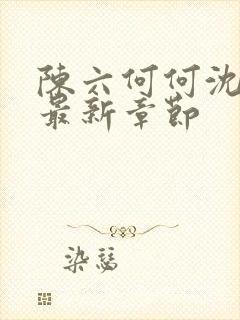 陳六何何沈
最新章節
染瑟